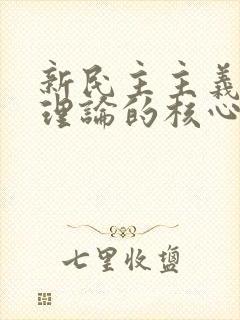 新民主主義
理論的核心
七里收鹽